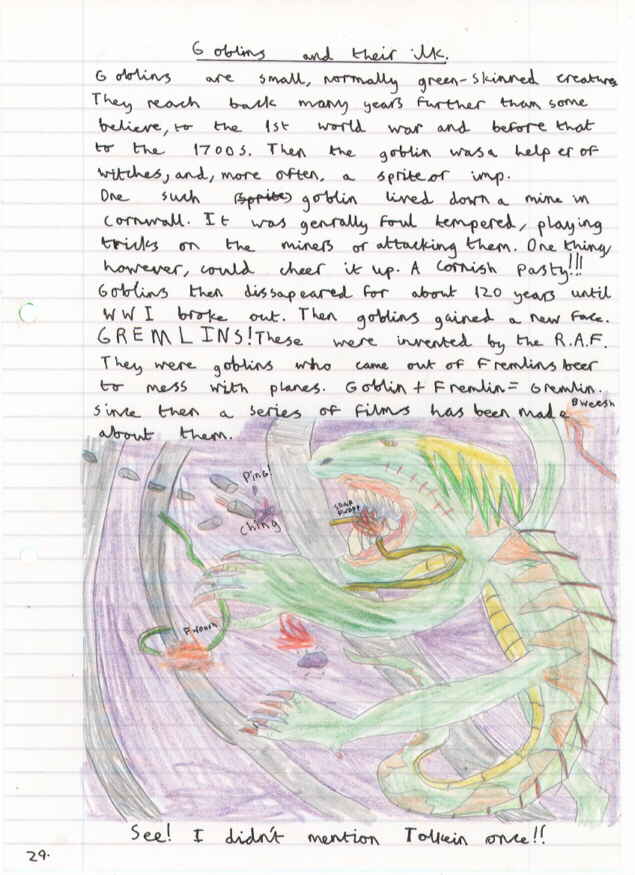 Goblins and their ilk.
Goblins are small, normally green-skinned creatures
They reach back many years further than some
believe, to the 1st world war and before that
to the 1700s. Then the goblin was a helper of
witches, and, more often, a sprite or imp.
One such (sprite) goblin lived down a mine in
Cornwall. It was genrally foul tempered, playing
tricks on the miners or attacking them. One thing,
however, could cheer it up. A Cornish Pasty!!!
Goblins then dissapeared for about 120 years until
WWI broke out. Then goblins gained a new face.
GREMLINS! These were invented by the R.A.F.
They were goblins who came out of Fremlins beer
to mess with planes. Goblin + Fremlin = Gremlin.
Since then a series of films has been made
about them.
Bweesh
Ping!
Ching
Fwoosh
See! I didn't mention Tolkein once!!
29.